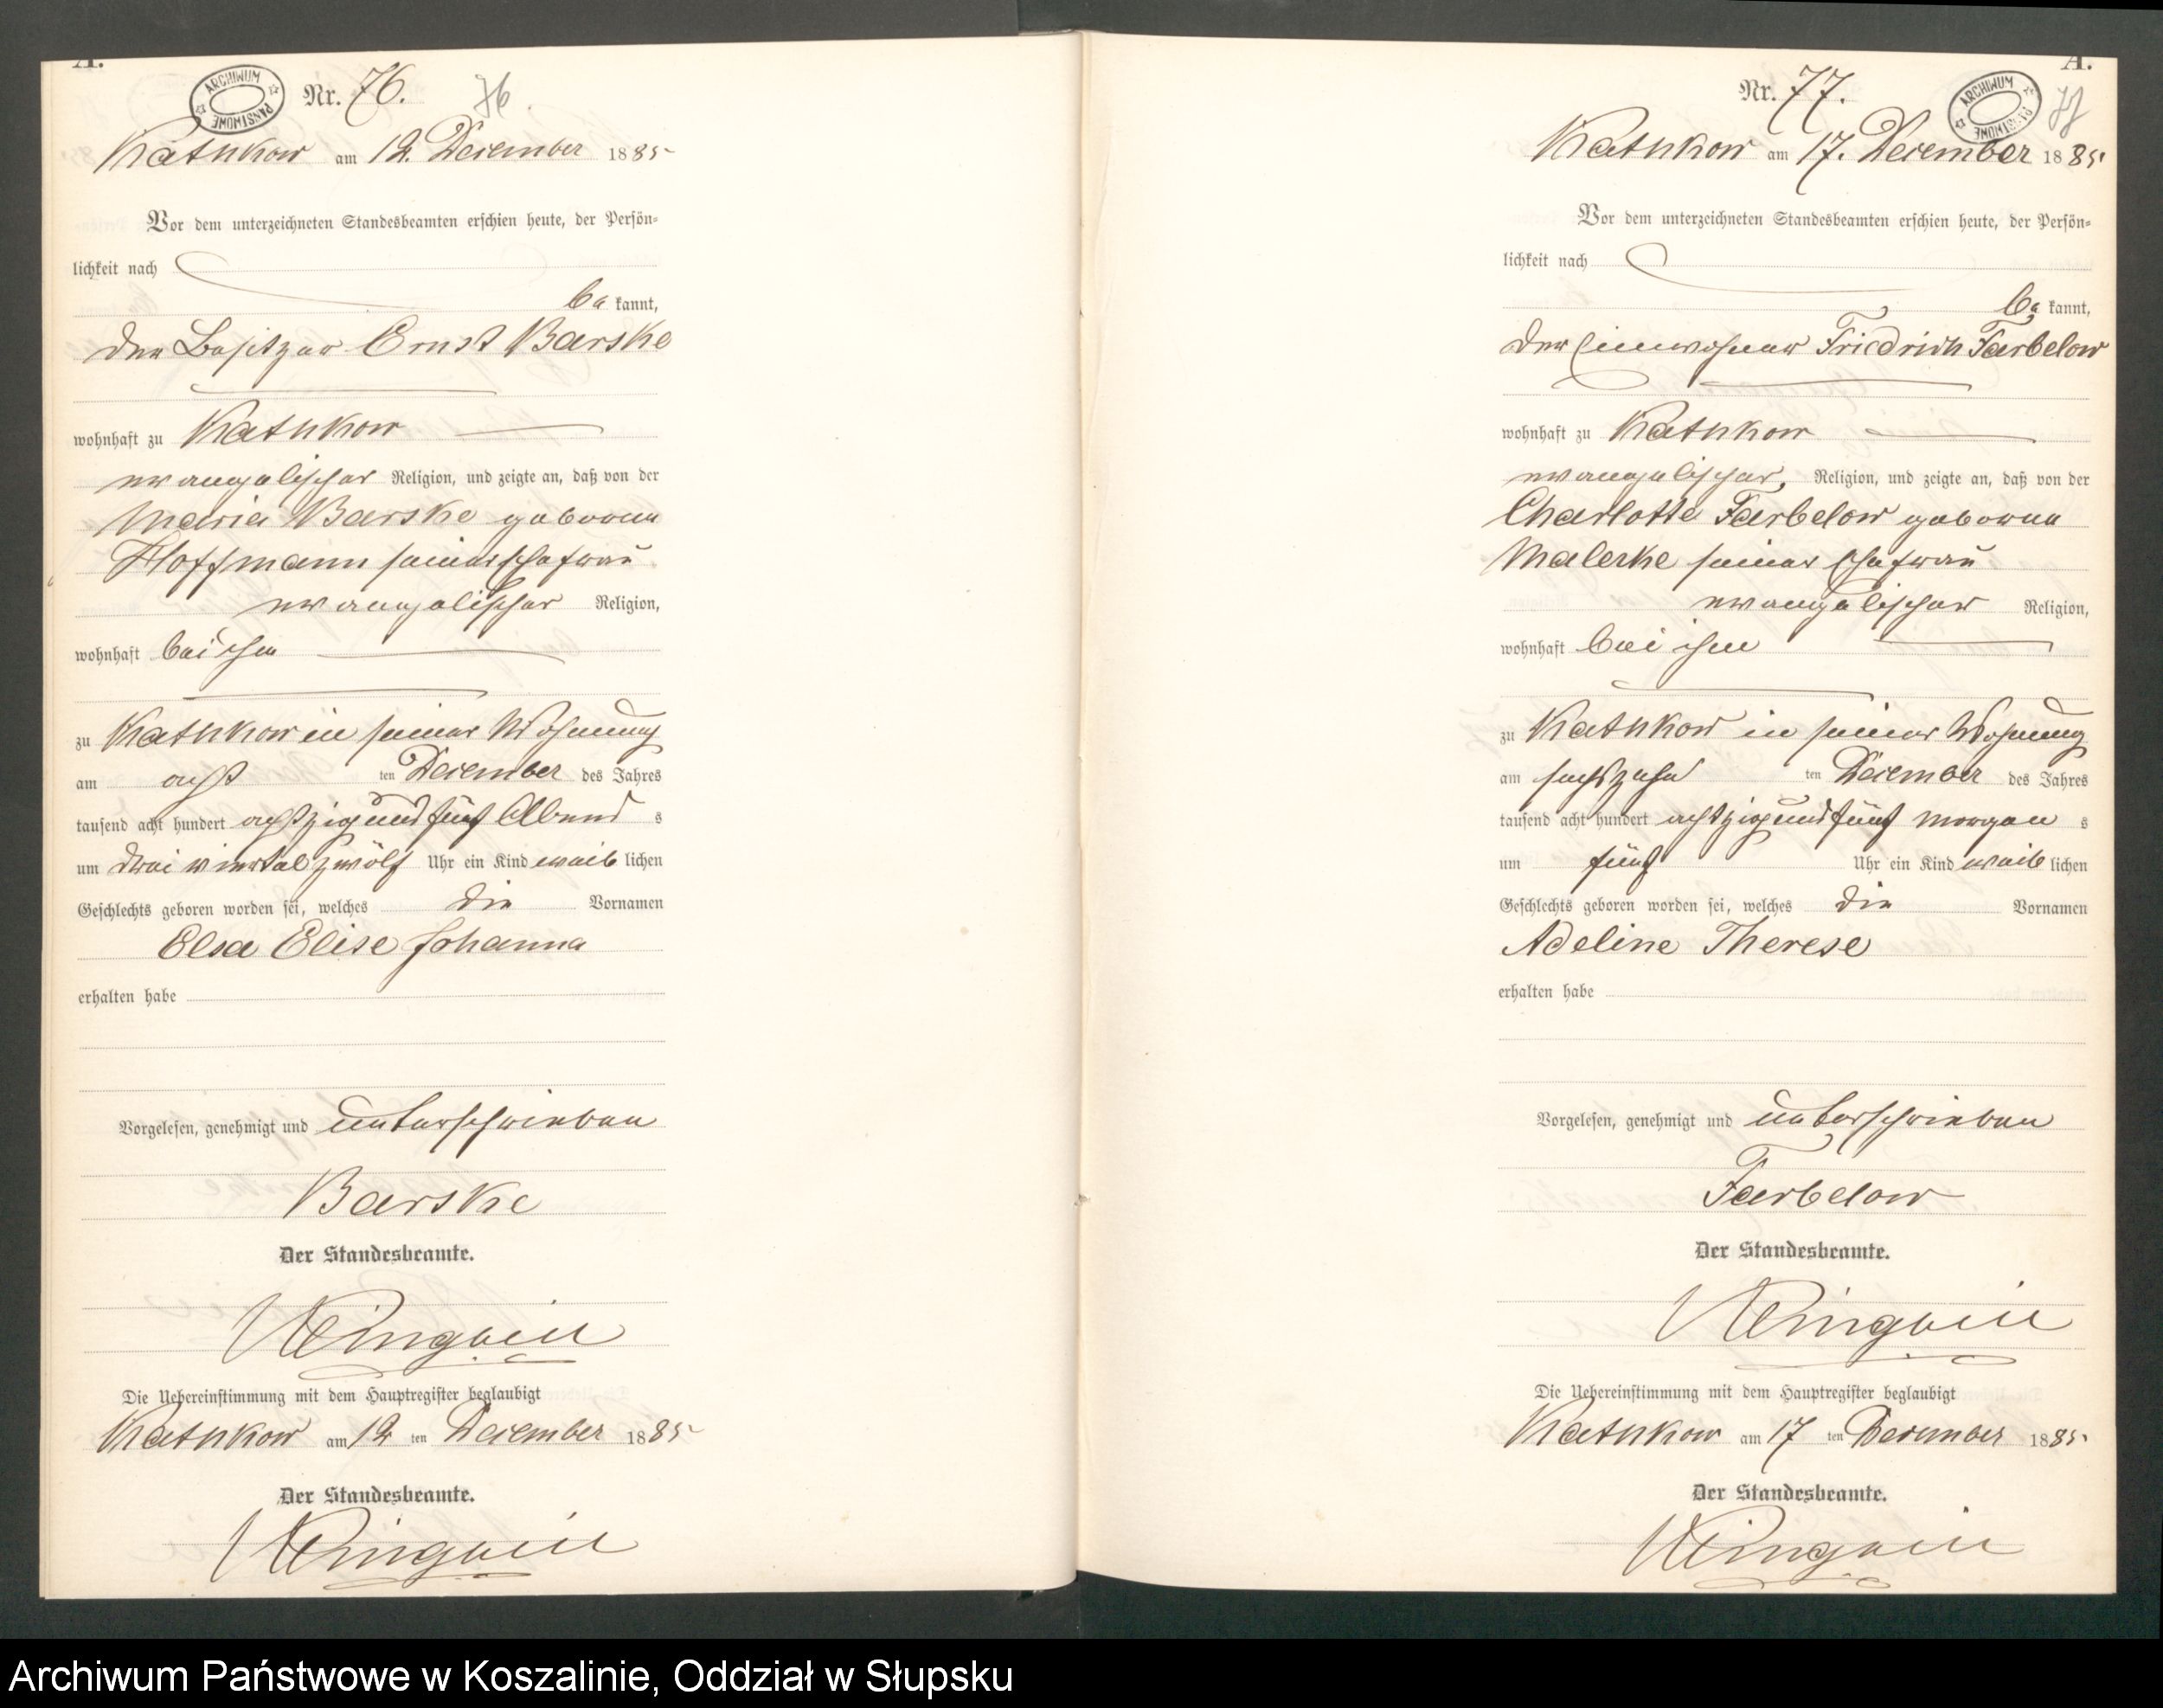 A.
ARCHIWUM PAŃSTWOWE
Nr. 76.
76.
Kathkow am 12. December 1885
Vor dem unterzeichneten Standesbeamten erschien heute, der Persön=
lichkeit nach
be kannt,
der Besitzer Ernst Barske
wohnhaft zu Kathkow
evangelischer Religion, und zeigte an, daß von der
Maria Barske geborene
Hoffmann seiner Ehefrau
evangelischer Religion,
wohnhaft bei ihm
zu Kathkow in seiner Wohnung
am acht ten December des Jahres
tausend acht hundert achtzig und fünf Abend s
um drei viertel zwölf Uhr ein Kind weib lichen
Geschlechts geboren worden sei, welches die Vornamen
Elsa Elise Johanna
erhalten habe
Vorgelesen, genehmigt und unterschrieben
Barske
Der Standesbeamte.
Die Uebereinstimmung mit dem Hauptregister beglaubigt
Kathkow am 12 ten December 1885
Der Standesbeamte.
A.
ARCHIWUM PAŃSTWOWE
Nr. 77.
77
Kathkow am 17. December 1885
Vor dem unterzeichneten Standesbeamten erschien heute, der Persön=
lichkeit nach
be kannt,
der Einwohner Friedrich Farbelow
wohnhaft zu Kathkow
evangelischer Religion, und zeigte an, daß von der
Charlotte Farbelow geborene
Malerke seiner Ehefrau
evangelischer Religion,
wohnhaft bei ihm
zu Kathkow in seiner Wohnung
am sechszehn ten December des Jahres
tausend acht hundert achtzig und fünf morgen s
um fünf Uhr ein Kind weib lichen
Geschlechts geboren worden sei, welches die Vornamen
Adeline Therese
erhalten habe
Vorgelesen, genehmigt und unterschrieben
Farbelow
Der Standesbeamte.
Die Uebereinstimmung mit dem Hauptregister beglaubigt
Kathkow am 17 ten December 1885
Der Standesbeamte.
Archiwum Państwowe w Koszalinie, Oddział w Słupsku